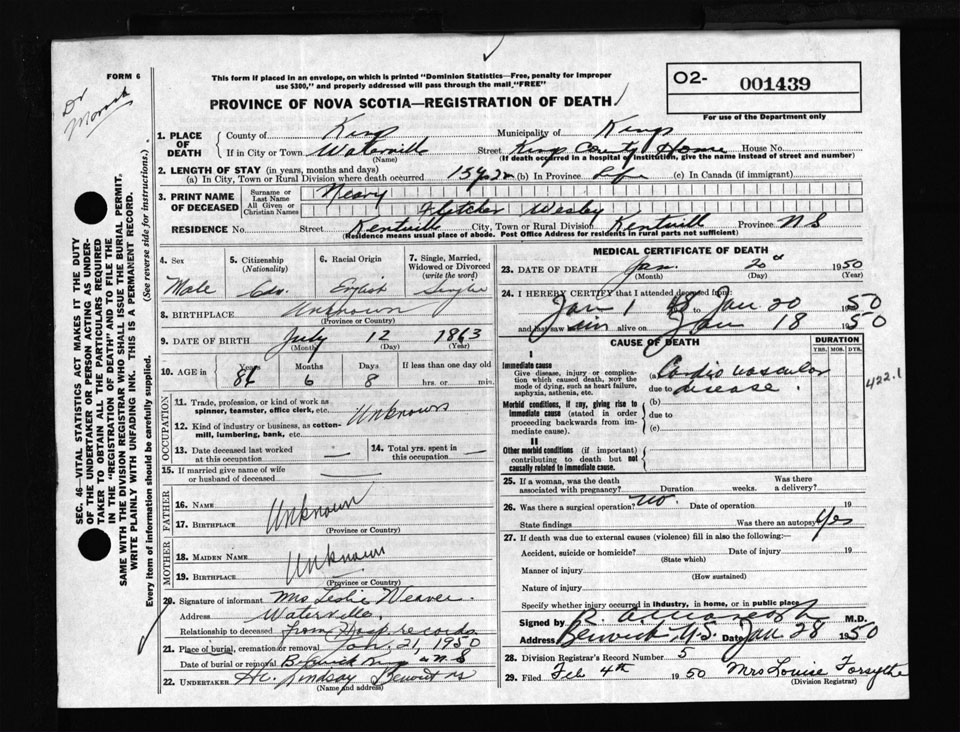 FORM 6
This form if placed in an envelope, on which is printed "Dominion Statistics—Free, penalty for improper
use $300," and properly addressed will pass through the mail "FREE"
O2- 001439
For use of the Department only
PROVINCE OF NOVA SCOTIA—REGISTRATION OF DEATH
Dr
SEC. 46—VITAL STATISTICS ACT MAKES IT THE DUTY
OF THE UNDERTAKER OR PERSON ACTING AS UNDER-
TAKER TO OBTAIN ALL THE PARTICULARS REQUIRED
IN THE "REGISTRATION OF DEATH" AND TO FILE THE
SAME WITH THE DIVISION REGISTRAR WHO SHALL ISSUE THE BURIAL PERMIT.
WRITE PLAINLY WITH UNFADING INK. THIS IS A PERMANENT RECORD.
Every item of information should be carefully supplied. (See reverse side for instructions.)
1. PLACE OF DEATH County of Kings Municipality of Kings
If in City or Town Waterville Street Kings County Home House No.
(Name) (If death occurred in a hospital or institution, give the name instead of street and number)
2. LENGTH OF STAY (in years, months and days)
(a) In City, Town or Rural Division where death occurred 15 (b) In Province Life (c) In Canada (if immigrant)
3. PRINT NAME OF DECEASED Surname or Last Name Neary
All Given or Christian Names Fletcher Wesley
RESIDENCE No. Street Kentville City, Town or Rural Division Kentville Province N S
(Residence means usual place of abode. Post Office Address for residents in rural parts not sufficient)
4. Sex 5. Citizenship (Nationality) 6. Racial Origin 7. Single, Married, Widowed or Divorced (write the word)
Male English Single
8. BIRTHPLACE Unknown
(Province or Country)
9. DATE OF BIRTH July 12 1863
(Month) (Day) (Year)
10. AGE in Years Months Days If less than one day old
86 6 8 hrs. or min.
OCCUPATION
11. Trade, profession, or kind of work as spinner, teamster, office clerk, etc.
Unknown
12. Kind of industry or business, as cotton-mill, lumbering, bank, etc.
13. Date deceased last worked at this occupation — 14. Total yrs. spent in this occupation —
15. If married give name of wife or husband of deceased
FATHER
16. Name
Unknown
17. BIRTHPLACE
(Province or Country)
MOTHER
18. MAIDEN NAME
Unknown
19. BIRTHPLACE
(Province or Country)
20. Signature of informant Mrs Leslie Weaver
Address Waterville
Relationship to deceased from Hosp records
21. Place of burial, cremation or removal Jan. 21, 1950
Date of burial or removal Berwick N S
22. UNDERTAKER Lindsay Berwick NS
(Name and address)
MEDICAL CERTIFICATE OF DEATH
23. DATE OF DEATH Jan. 20 1950
(Month) (Day) (Year)
24. I HEREBY CERTIFY that I attended deceased from:
Jan 1 Jan 20 1950
and that saw him alive on Jan 18 1950
CAUSE OF DEATH DURATION
YRS. MOS. DYS.
I
Immediate cause
Give disease, injury or complication which caused death, NOT the mode of dying, such as heart failure, asphyxia, asthenia, etc.
(a) Cardio vascular
due to disease.
422.1
Morbid conditions, if any, giving rise to immediate cause (stated in order proceeding backwards from immediate cause).
(b)
due to
(c)
II
Other morbid conditions (if important) contributing to death but not causally related to immediate cause.
25. If a woman, was the death associated with pregnancy? Duration weeks. Was there a delivery?
26. Was there a surgical operation? No. Date of operation 19
State findings Was there an autopsy Yes
27. If death was due to external causes (violence) fill in also the following:—
Accident, suicide or homicide? Date of injury 19
(State which)
Manner of injury
(How sustained)
Nature of injury
Specify whether injury occurred in industry, in home, or in public place
Signed by M.D.
Address Berwick, N.S. Date Jan 28 1950
28. Division Registrar's Record Number 5
29. Filed Feb 4th 1950 Mrs Louise Forsythe
(Division Registrar)